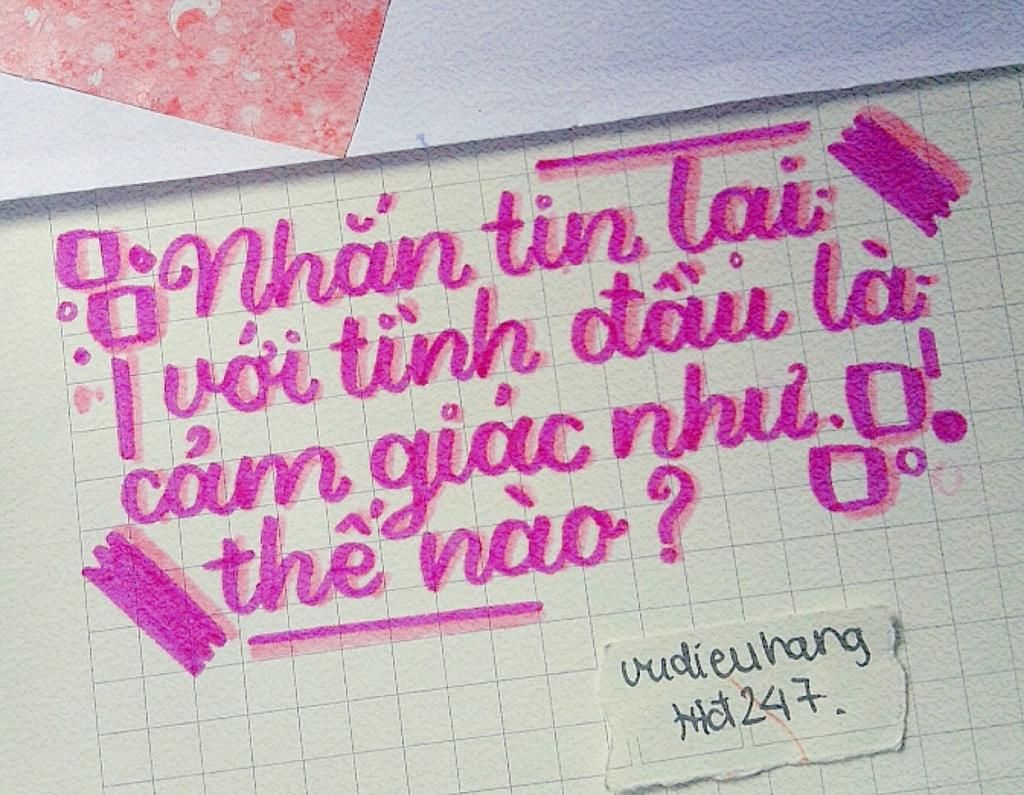 Nhắn tin lại
với tình đầu là
cảm giác như
thế nào?
vudieuhang
247.